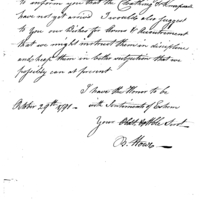 to inform you that the Cloathing & Accoutrements
have not yet arrived I would also suggest
to You our Wishes for Arms & Accoutrements
that we might instruct them in discipline
and keep them in better subjection than we
possibly can at present
I have the Honor to be
October 29th 1791 with Sentiments of Esteem
Your Obdt Hble Servt